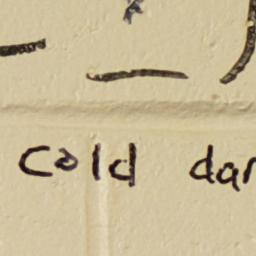 cold dar